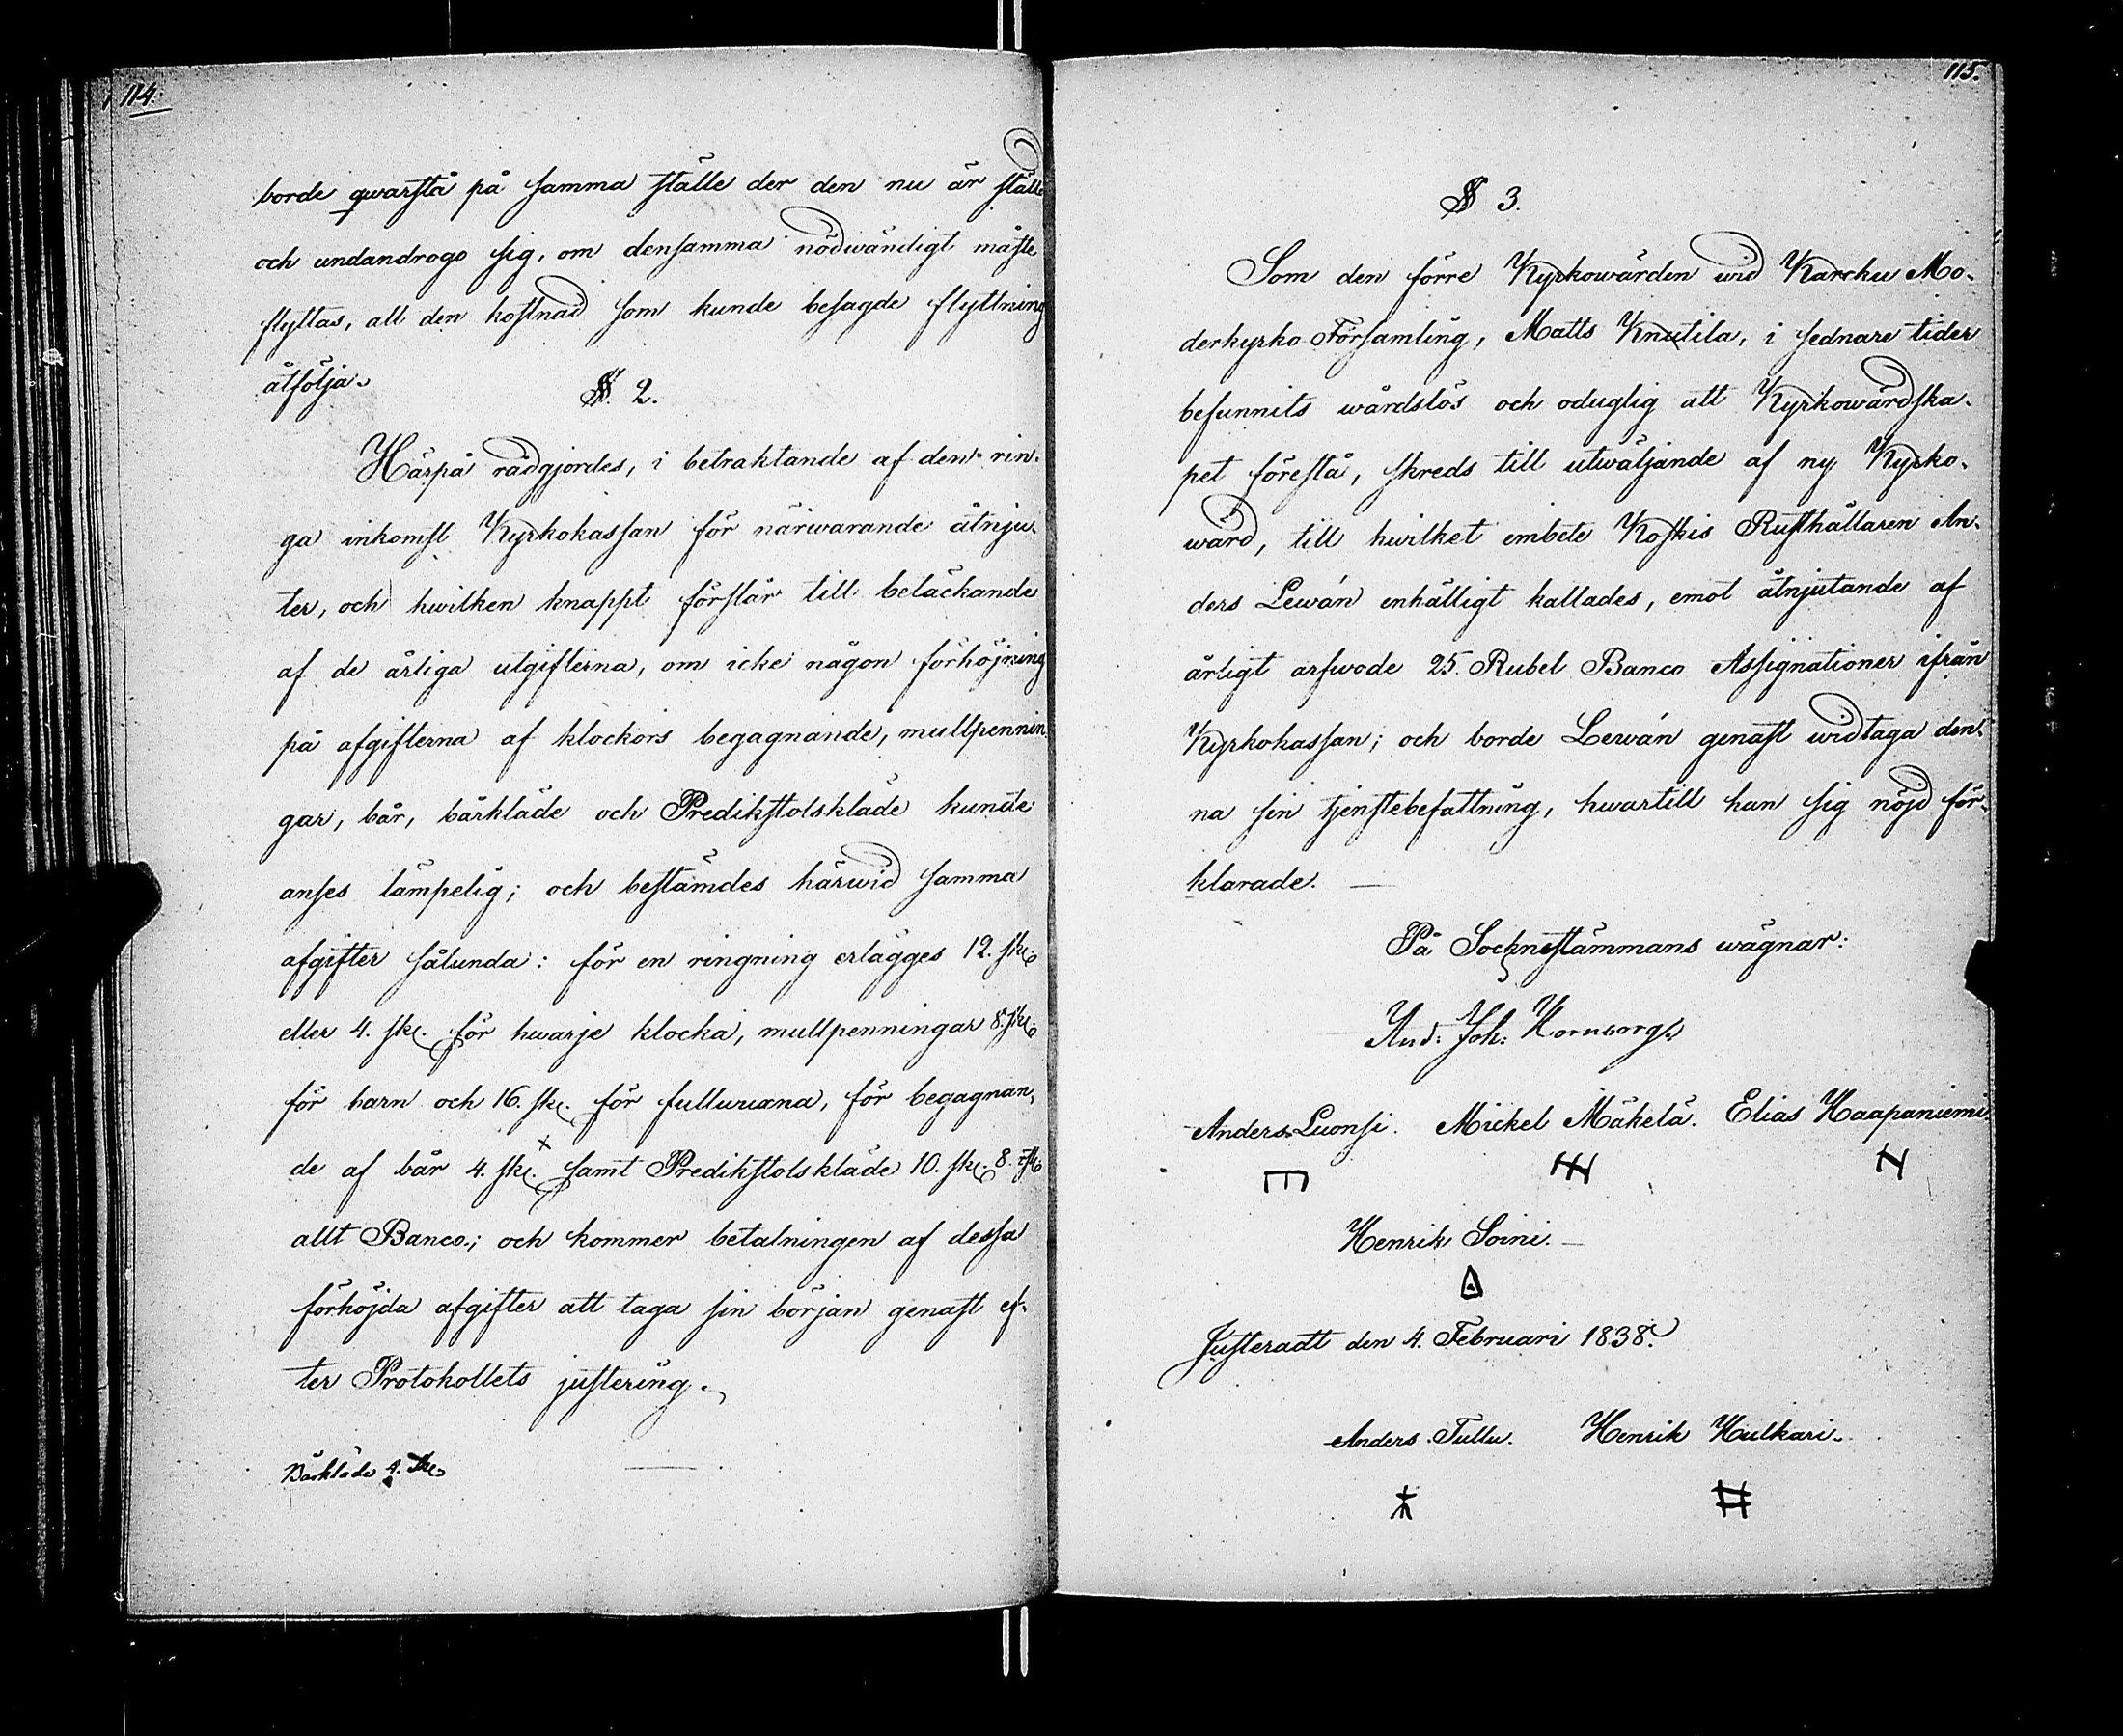 114.
borde qwarstå på samma ställe der den nu är ställd
och undandrogo sig, om densamma nödwändigt måste
flyttas, all den kostnad som kunde besagde flyttning
åtfölja.
§. 2.
Härpå rådgjordes, i betraktande af den rin-
ga inkomst Kyrkokassan för närwarande åtnju-
ter, och hwilken knappt förslår till betäckande
af de årliga utgifterna, om icke någon förhöjning
på afgifterna af klockors begagnande, mullpennin-
gar, bår, bårkläde och Predikstolskläde kunde
anses lämpelig; och bestämdes härwid samma
afgifter sålunda: för en ringning erlägges 12. sk.
eller 4. sk. för hwarje klocka, mullpenningar 8. sk.
för barn och 16. sk. för fullwuxna, för begagnan-
de af bår 4. sk. x samt Predikstolskläde 10. sk. 8. rst.
allt Banco.; och kommer betalningen af dessa
förhöjda afgifter att taga sin början genast ef-
ter Protokollets justering.
Bårkläde 4. Sk.
115.
§ 3.
Som den förre Kyrkowärden wid Karcku Mo-
derkyrko Församling, Matts Knutila, i sednare tider
befunnits wårdslös och oduglig att Kyrkowärdska-
pet förestå, skreds till utwäljande af ny Kyrko-
wärd, till hwilket embete Koskis Rusthållaren An-
ders Lewán enhälligt kallades, emot åtnjutande af
årligt arfwode 25. Rubel Banco Assignationer ifrån
Kyrkokassan; och borde Lewán genast widtaga den-
na sin tjenstebefattning, hwartill han sig nöjd för-
klarade.
På Socknestämmans wägnar:
And: Joh: Hornborg
Anders Luonsi. Mickel Mäkelä. Elias Haapaniemi.
Henrik Soini.
Justeradt den 4. Februari 1838.
Anders Tullu. Henrik Hulkari.